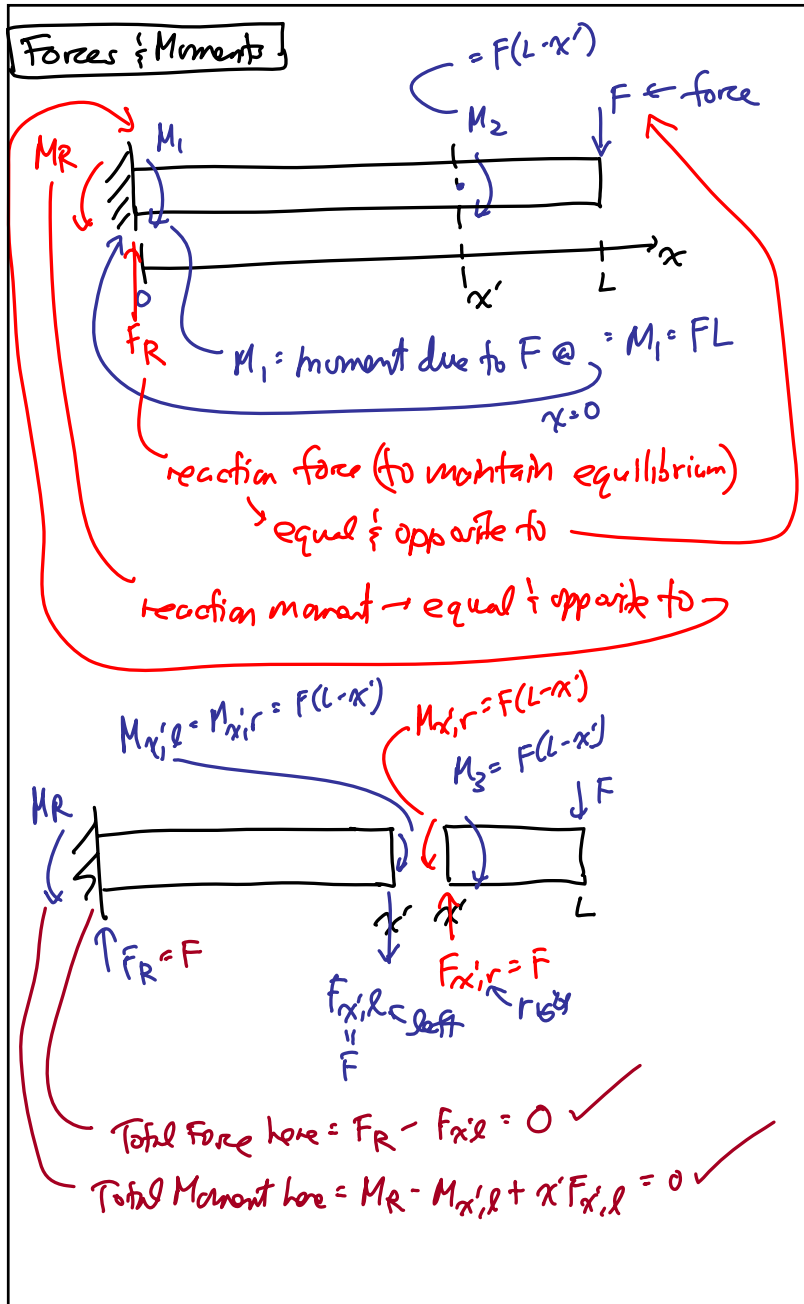 Forces & Moments
= F(L-x')
F ← force
M₁
M₂
M_R
x
0
x'
L
F_R
M₁ = moment due to F @ = M₁ = FL
x=0
reaction force (to maintain equilibrium)
equal & opposite to
reaction moment → equal & opposite to
M_x',l = M_x',r = F(L-x')
M_x',r = F(L-x')
M₃ = F(L-x')
F
M_R
x'
x'
L
F_R = F
F_x',r = F
F_x',l ← left
right
=
F
Total Force here = F_R - F_x'l = 0 ✓
Total Moment here = M_R - M_x',l + x' F_x',l = 0 ✓